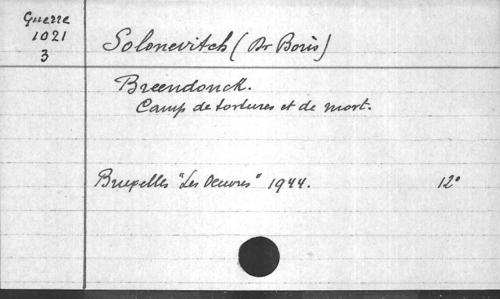 Guerre
1021
3
Solonevitch (Dr Boris)
Breendonck.
Camp de tortures et de mort.
Bruxelles "Les Oeuvres" 1944. 12°